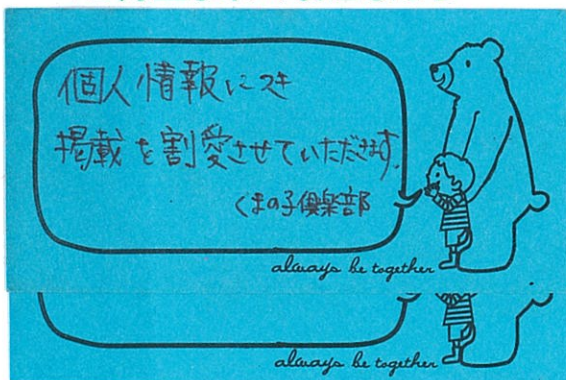 個人情報につき
掲載を割愛させていただきます。
くまの子倶楽部
always be together
always be together